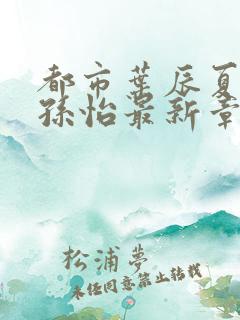 都市葉辰夏
孫怡最新章
松浦夢
未任同意禁止转载